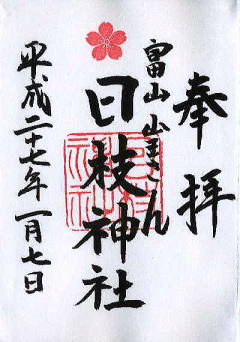 奉拝
富山山王さん
日枝神社
平成二十七年一月七日